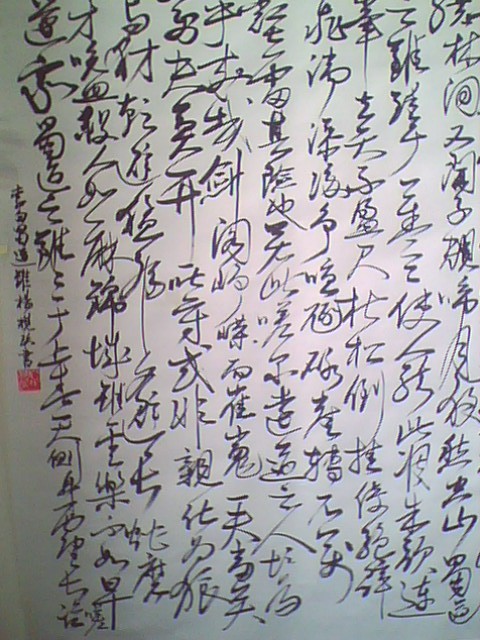 林間又聞子規啼月夜愁空山蜀道
之難難于上青天使人聽此凋朱顏連
峰去天不盈尺枯松倒掛倚絕壁
飛湍瀑流爭喧豗砯崖轉石萬
壑雷其險也若此嗟爾遠道之人胡為
乎來哉劍閣崢嶸而崔嵬一夫當關
萬夫莫開所守或非親化為狼
與豺朝避猛虎夕避長蛇磨
牙吮血殺人如麻錦城雖云樂不如早
還家蜀道之難難于上青天側身西望長咨嗟
李白蜀道難楊書